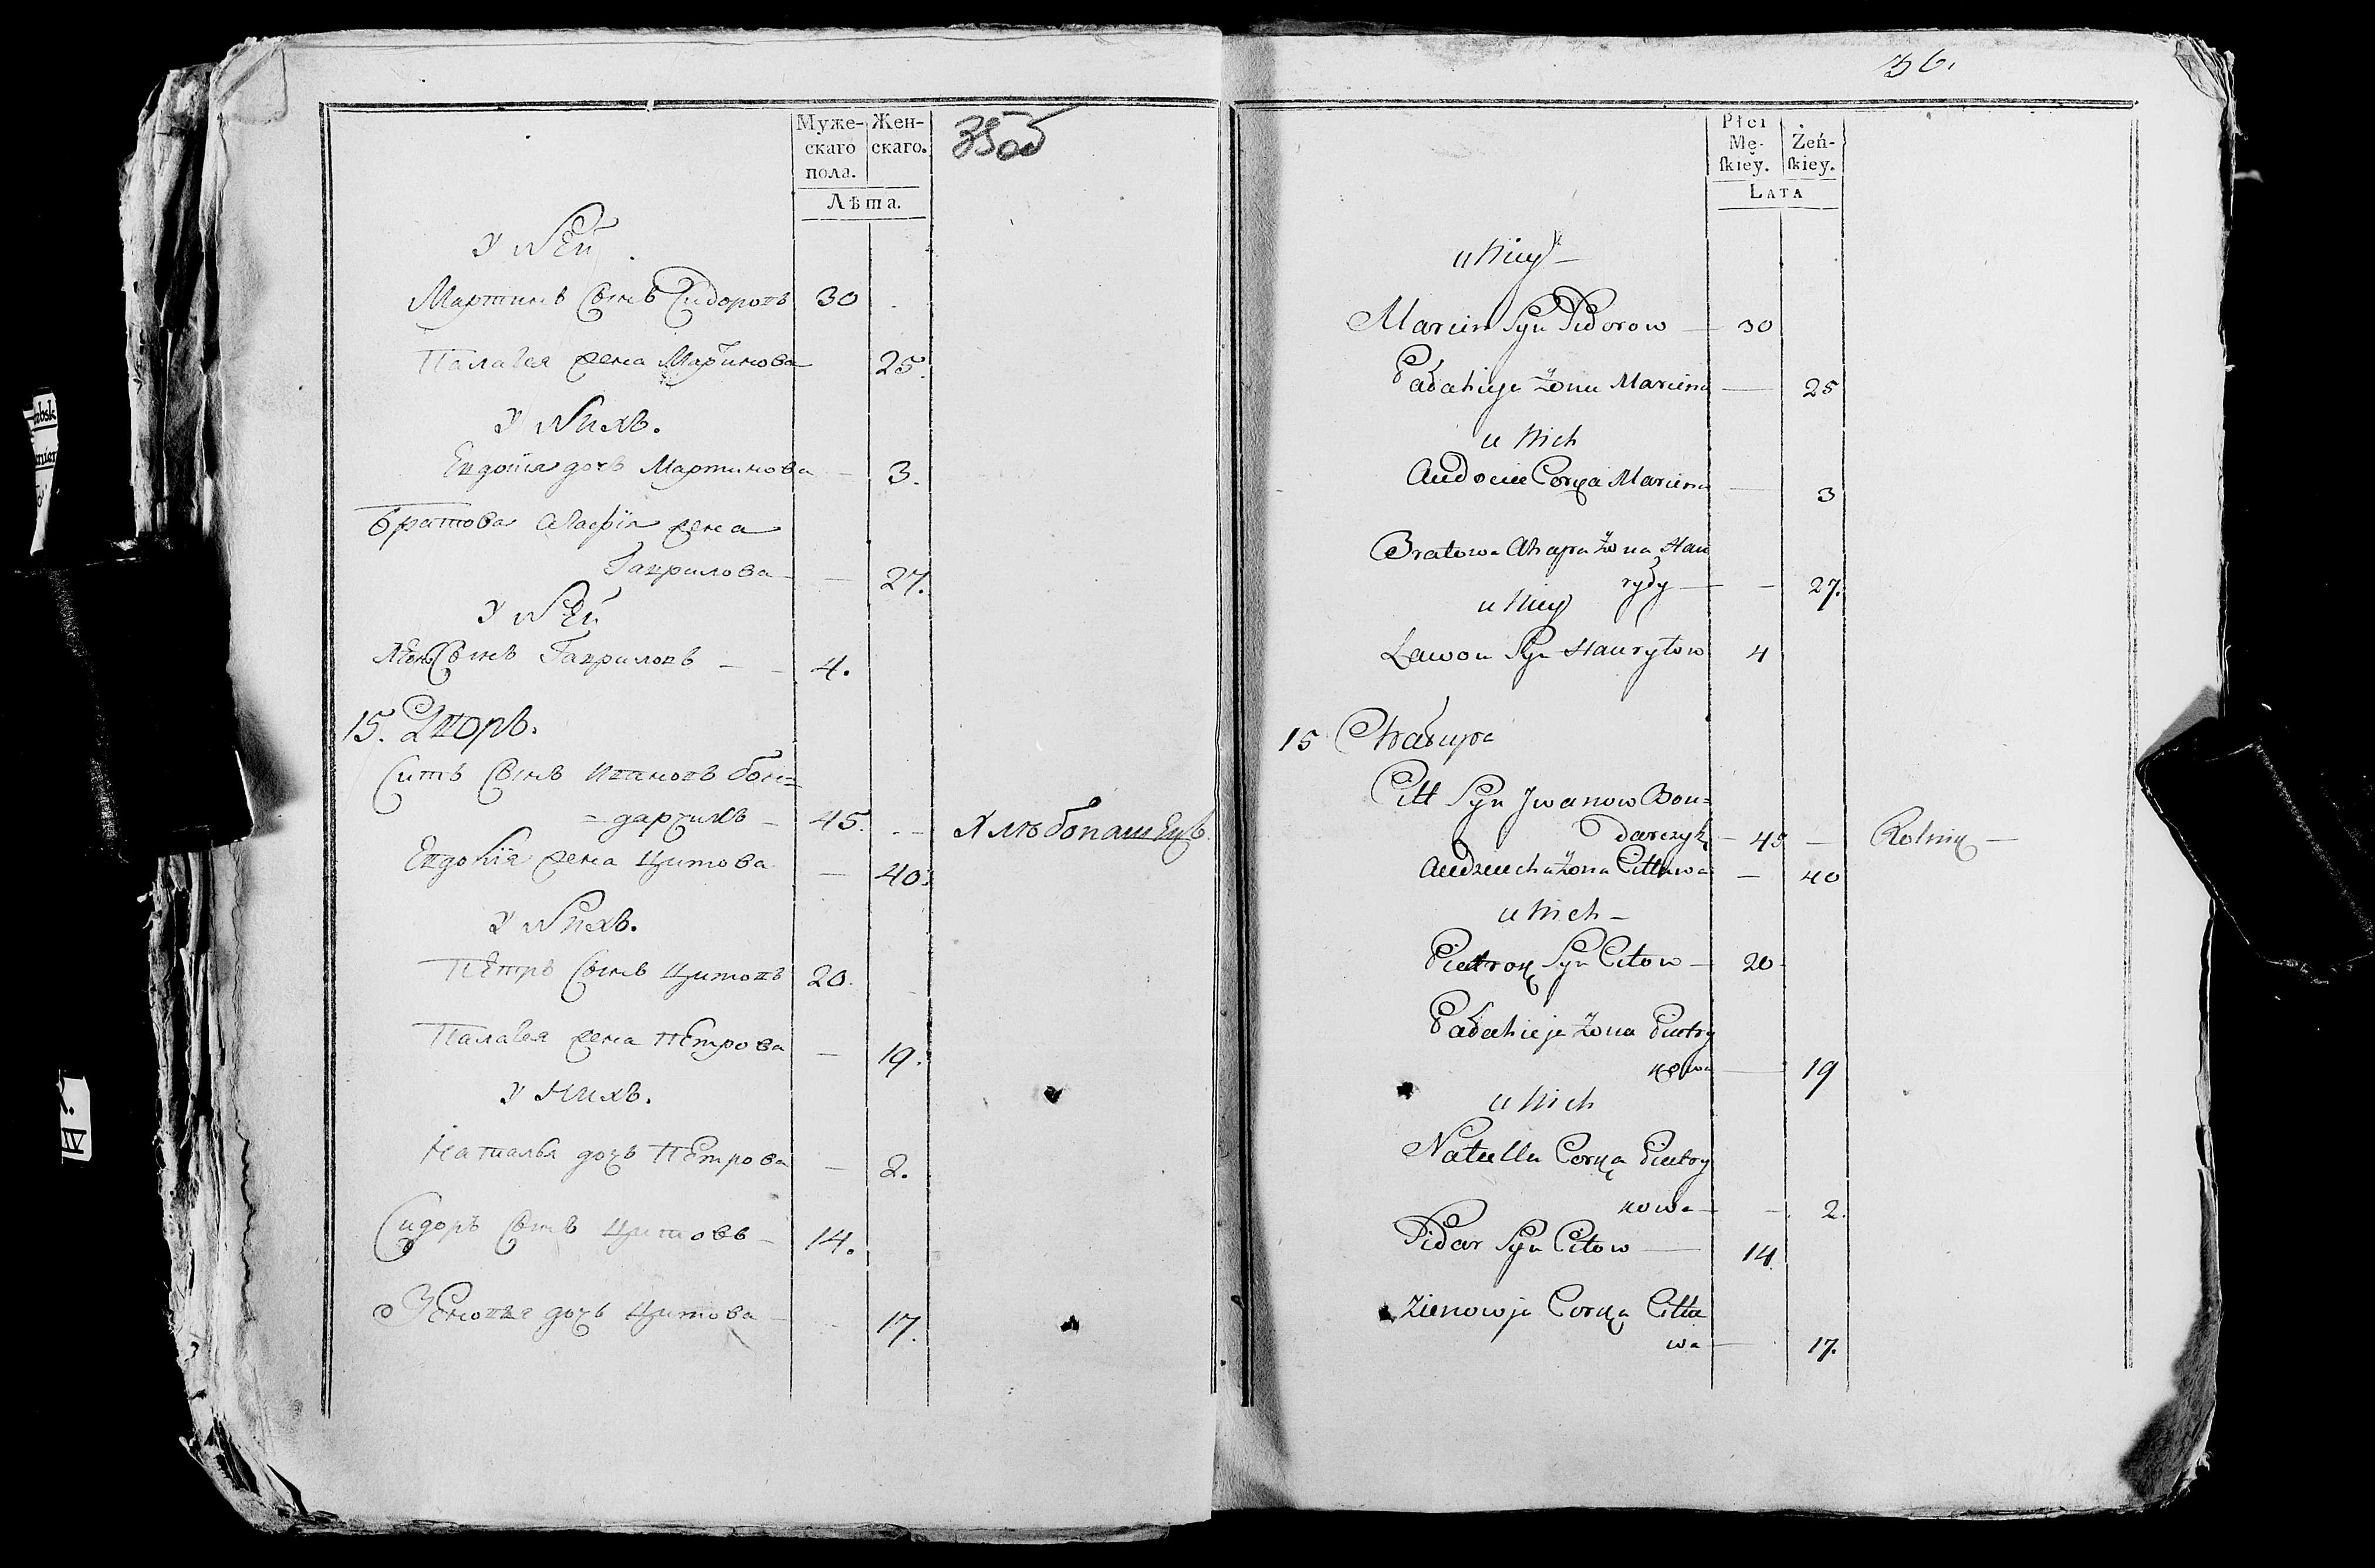 Муже-
скаго
пола.
Жен-
скаго.
Лѣта.
35об
У Ней
Мартинъ Сынъ Сидоровъ 30
Палагея жена Мартинова 25.
У Нихъ.
Евдокия дочь Мартинова — 3.
Братова Агафія жена
Гаврилова — — 27.
У Ней
Сынъ Гавриловъ — — 4.
15. Дворъ.
Титъ Сынъ Ивановъ бон=
=дарчикъ — 45. — Хлѣбопашецъ
Евдокія жена Цитова — 40.
У Нихъ.
Петръ Сынъ Цитовъ 20.
Палагея жена Петрова — 19.
У Нихъ.
Наталья дочь Петрова — 2.
Сидоръ Сынъ Цитовъ — 14.
Зеновья дочь Цитова — 17.
36.
Płci
Mę-
ſkiey.
Żeń-
ſkiey.
LATA
u Niey —
Marcin Syn Sidorow — 30
Pałahieja Żona Marcina — 25
u Nich
Audocia Corka Marcina — 3
Bratowa Ahapa Żona Hau
ryły — — 27.
u Niey
Lawon Syn Haurylow 4
15 Chałupa
Citt Syn Jwanow Bon=
darczyk — 45 — Rolnik —
Audziucha Żona Cittowa — 40
u Nich —
Pietrok Syn Citow — 20
Pałahieja Żona Pietry
kowa — 19
u Nich
Natalla Corka Pietry
kowa — — 2.
Sidar Syn Citow — 14
Zienowja Corka Citto
wa — 17.